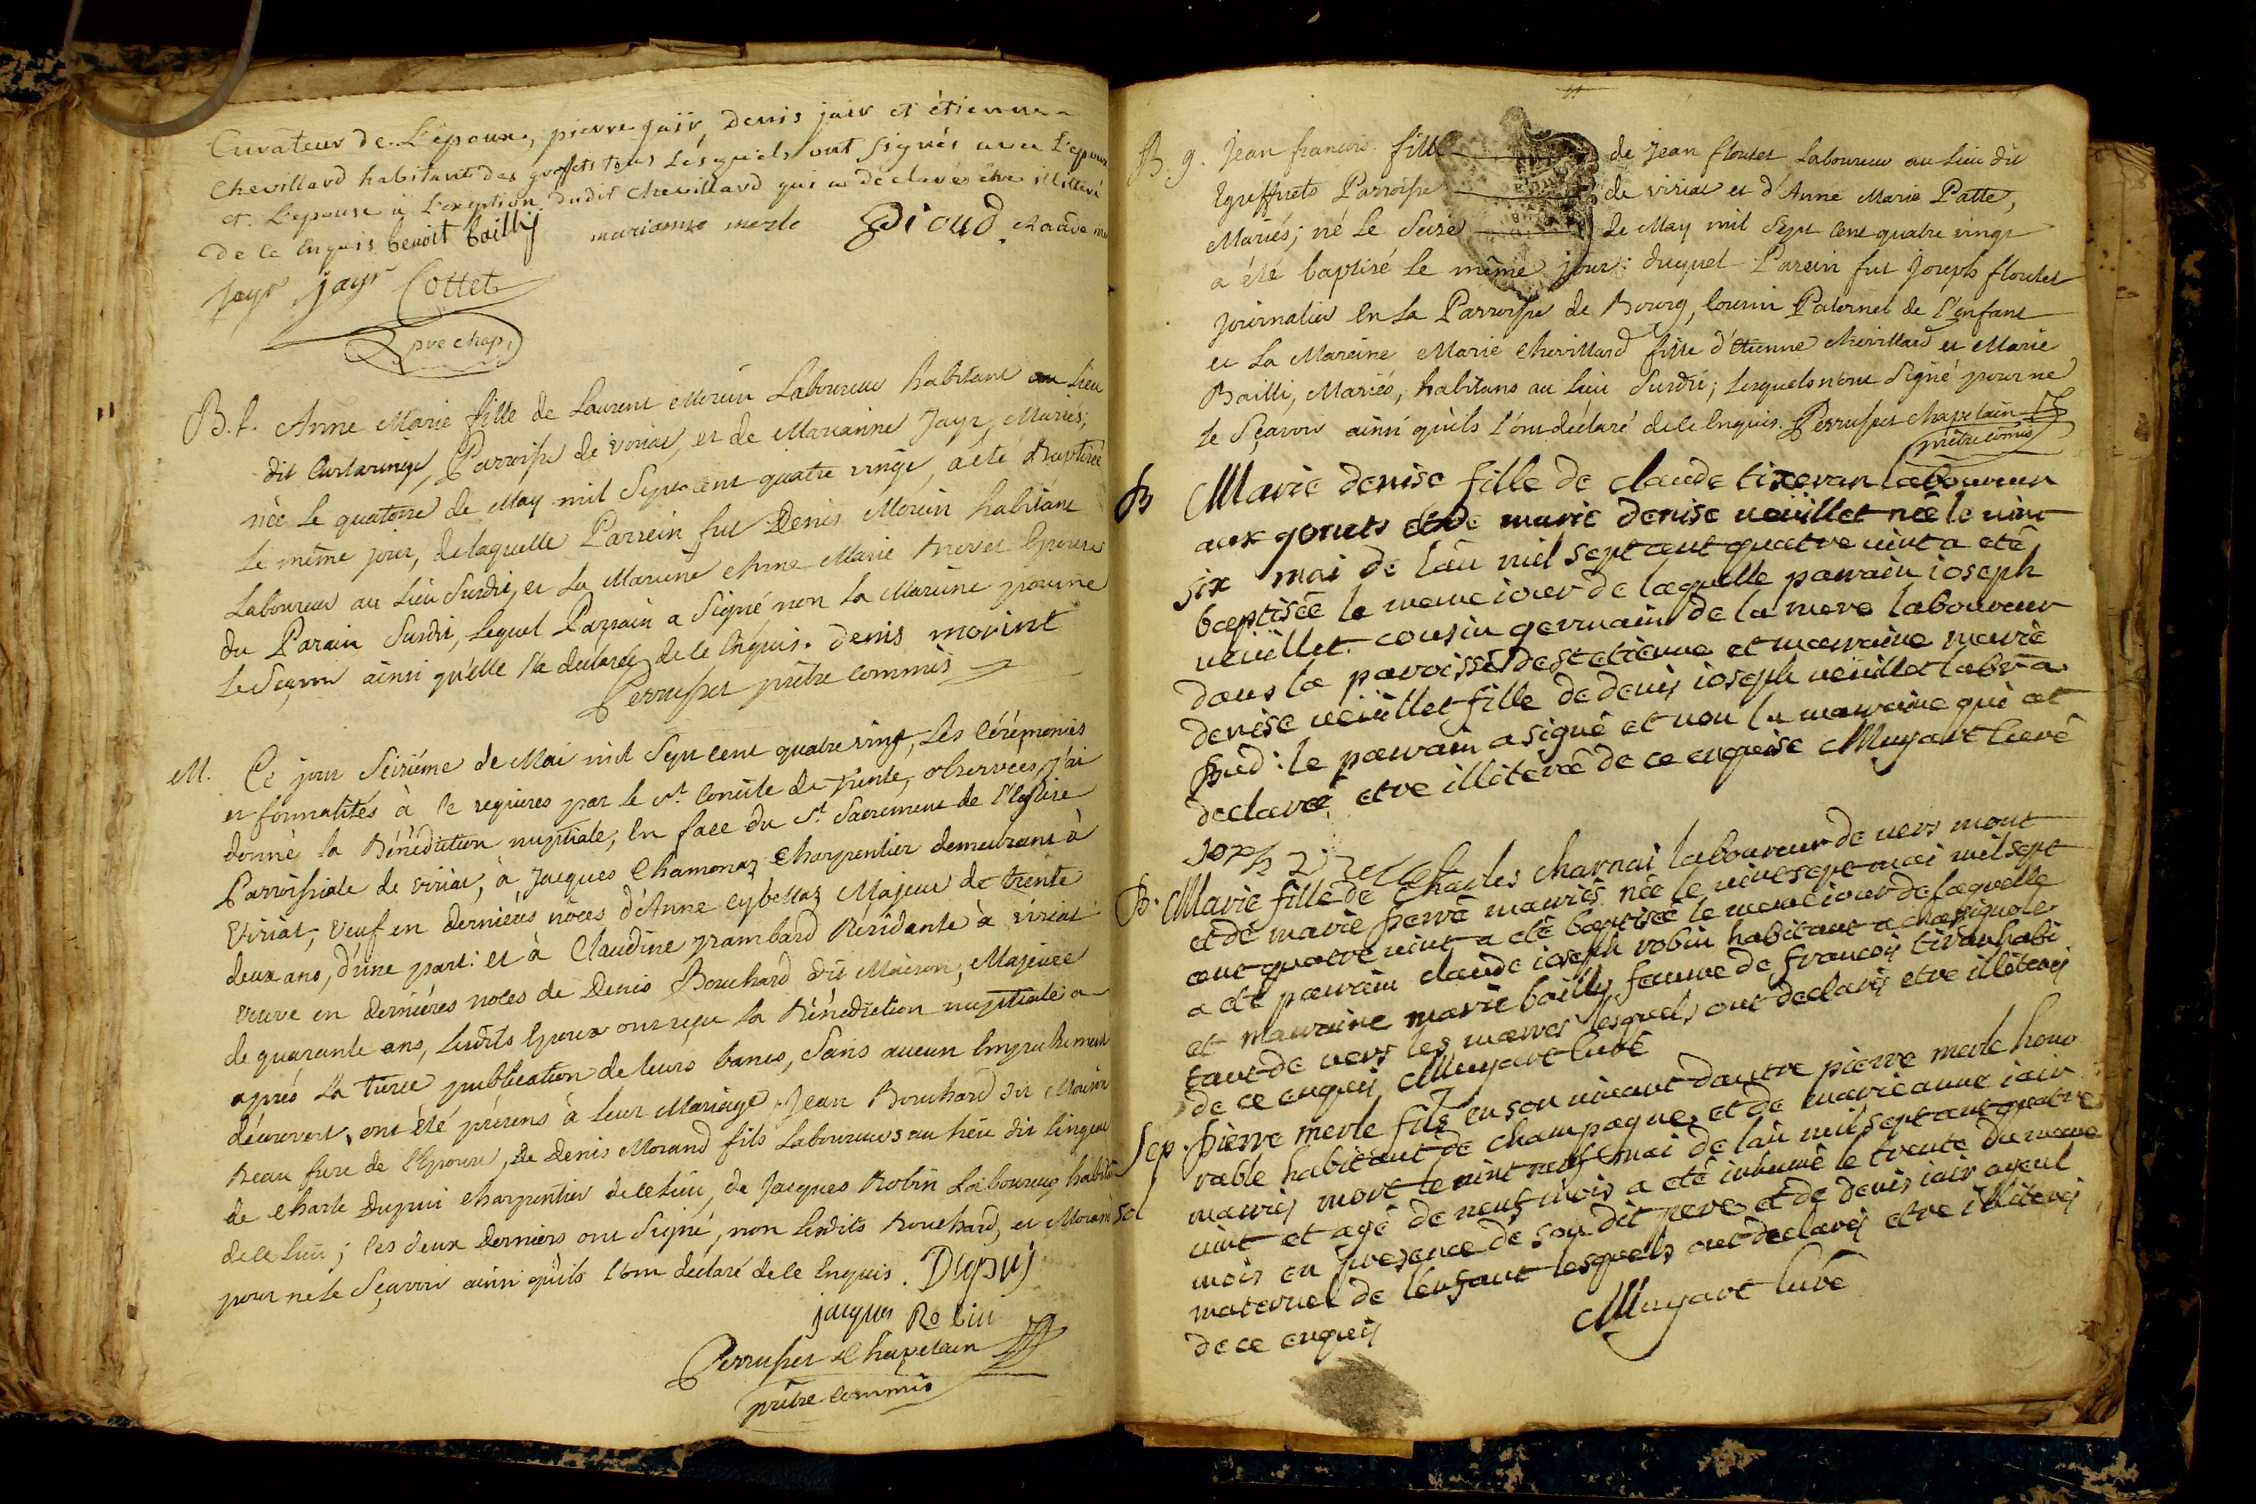 Curateur de L'épouse, pierre jair, Denis jair et étienne
Chevillard habitant des greffets tous Lesquels ont signés avec L'epoux
et L'epouse à L'exeption dudit Chevillard qui a déclaré être illitéré
de ce Enquis benoit bailly marianne merle Dioud Claude
jayr jayr Cottet
pre chap.
B. f. Anne Marie fille de Laurent Morin Laboureur habitant au Lieu
dit Curtaringe, Parroisse de viriat, et de Marianne Jayr, Mariés;
née le quatorze de May mil Sept cent quatre vingt, a été Baptisée
le même jour, de laquelle Parrein fut Denis Morin habitant
Laboureur au Lieu Susdit, et La Mareine Anne Marie Brevet Epouse
du Parain Susdit, Lequel Parrain a Signé non la Mareine pour ne
le Sçavoir ainsi qu'elle l'a déclaré de ce Enquis. Denis morint
Perruset prêtre commis
M. Ce jour Seizième de Mai mil Sept cent quatre vingt, Les Cérémonies
et formalités à ce requises par le st. Concile de Trente, observées, j'ai
donné la Bénédiction nuptiale, En face du st. Sacrement de l'Eglise
Parroissiale de viriat, à Jacques Chamonaz Charpentier demeurant à
Viriat, Veuf en dernières nôces d'Anne Cybellaz Majeur de trente
deux ans, d'une part: et à Claudine grambard Résidante à viriat
veuve en dernières noces de Denis Bouchard dit Maison, Majeure
de quarante ans, Lesdits Epoux ont reçu la Bénédiction nuptiale
après la tierce publication de leurs bancs, Sans aucun Empechement
découvert, ont été présens à leur Mariage, Jean Bouchard dit Maison
Beau frere de l'Epouse, de Denis Morand fils Laboureurs au lieu dit
de Charle Dupui Charpentier de ce Lieu, de Jacques Robin Laboureur habitant
de ce Lieu; les deux Derniers ont Signé, non Lesdits Bouchard, et Morand
pour ne le Sçavoir ainsi qu'ils l'ont déclaré de ce Enquis. Dupuy
jacques Robin
Perruset Chapelain
prêtre commis
B. g. Jean francois fill de Jean floutet Laboureur au Lieu dit
Egreffets Parroisse de viriat et d'Anne Marie Patte,
Mariés; né Le Seize de May mil Sept Cent quatre vingt
a été baptisé Le même jour: duquel Parein fut Joseph floutet
journalier En La Parroisse de Bourg, Cousin Paternel de l'Enfant
et La Mareine Marie Chevillard fille d'Etienne Chevillard et Marie
Bailli, Mariés, habitans au Lieu Susdit; Lesquels n'ont Signé pour ne
le Sçavoir ainsi qu'ils l'ont déclaré de ce Enquis. Perruset Chapelain
prêtre comis
B Marie denise fille de claude tixeran laboureur
aux gonets et de marie denise veuillet née le vint
six mai de lan mil sept cent quatre vint a eté
baptisée le meme jour de laquelle parrain joseph
veuillet cousin germain de la mere laboureur
dans la paroisse de st etienne et marraine marie
denise veuillet fille de denis joseph veuillet labr a
sud: le parrain a signé et non la marraine qui at
declaré etre illiterée de ce enquise Muyart Curé
B. Marie fille de Charles charnai laboureur de vers mont
et de marie pierre mariés née le vint sept mai mil sept
cent quatre vint a eté baptisée le meme jour de laquelle
a eté parrain claude joseph robin habitant a chassignole
et marraine marie bailly femme de francois tiran habi
tant de vers les marres lesquels ont declarés etre illiterés
de ce enquis Muyart Curé
Sep. pierre merle fils en son vivant dautre pierre merle hono
rable habitant de champagne et de marie anne jair
mariés mort le vint neuf mai de lan mil sept cent quatre
vint et agé de neuf mois a eté inhumé le trente du meme
mois en presence de son dit pere et de denis jair ayeul
maternel de lenfant lesquels ont declarés etre illiterés
de ce enquis
Muyart Curé